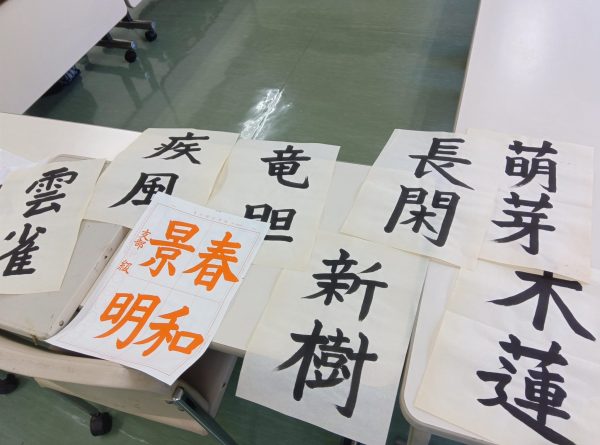 雲雀
疾風
竜胆
長閑
萌芽
木蓮
新樹
春和
景明
支部 級